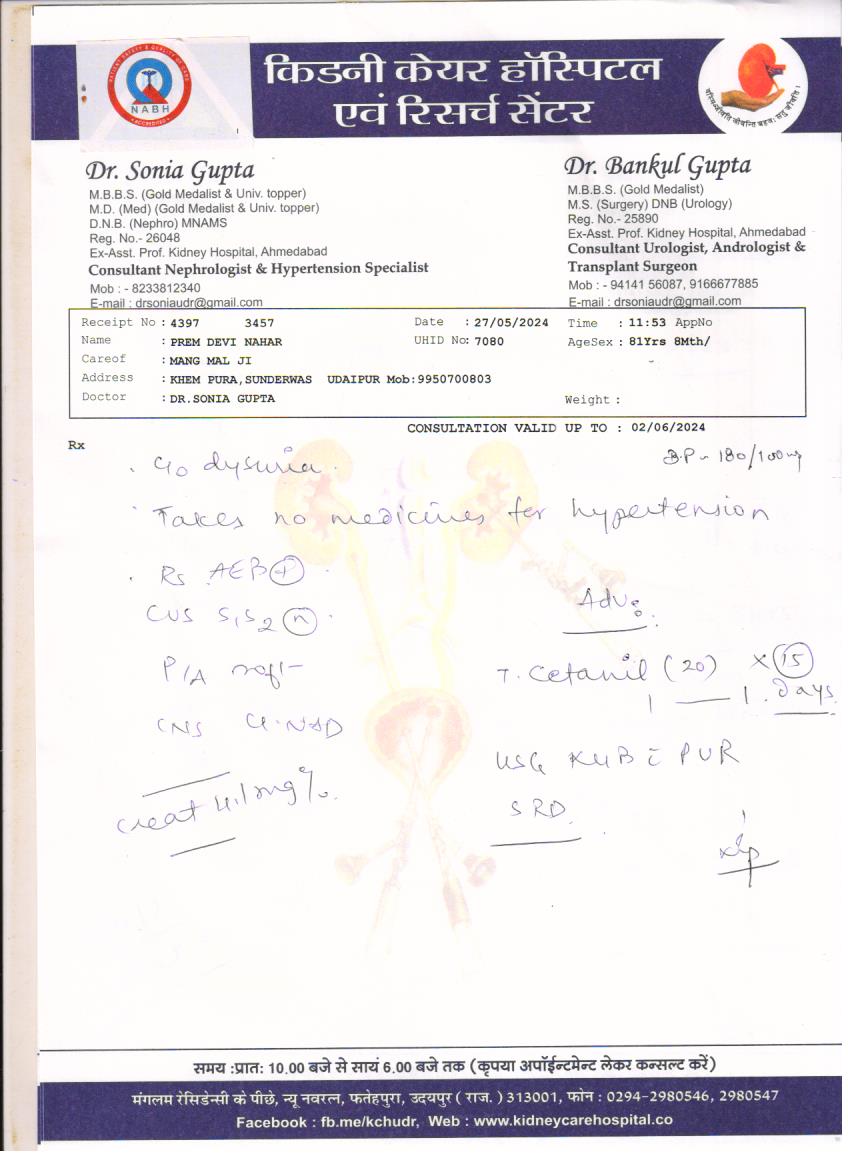 PATIENT SAFETY & QUALITY OF CARE
NABH
ACCREDITED
किडनी केयर हॉस्पिटल
एवं रिसर्च सेंटर
Dr. Sonia Gupta
M.B.B.S. (Gold Medalist & Univ. topper)
M.D. (Med) (Gold Medalist & Univ. topper)
D.N.B. (Nephro) MNAMS
Reg. No.- 26048
Ex-Asst. Prof. Kidney Hospital, Ahmedabad
Consultant Nephrologist & Hypertension Specialist
Mob : - 8233812340
E-mail : drsoniaudr@gmail.com
Dr. Bankul Gupta
M.B.B.S. (Gold Medalist)
M.S. (Surgery) DNB (Urology)
Reg. No.- 25890
Ex-Asst. Prof. Kidney Hospital, Ahmedabad
Consultant Urologist, Andrologist &
Transplant Surgeon
Mob : - 94141 56087, 9166677885
E-mail : drsoniaudr@gmail.com
Receipt No : 4397 3457 Date : 27/05/2024 Time : 11:53 AppNo
Name : PREM DEVI NAHAR UHID No: 7080 AgeSex : 81Yrs 8Mth/
Careof : MANG MAL JI
Address : KHEM PURA,SUNDERWAS UDAIPUR Mob:9950700803
Doctor : DR.SONIA GUPTA Weight :
CONSULTATION VALID UP TO : 02/06/2024
Rx
B.P - 180/100
dysuria
Takes no medicines for hypertension
Rs AEB +
CVS S1S2 n
Adv:
P/A soft
T. Cetanil (20) x 15
1 — 1 Days
CNS NAD
USG KUB c PVR
creat 4.1mg%
SRD
समय :प्रात: 10.00 बजे से सायं 6.00 बजे तक (कृपया अपॉईन्टमेन्ट लेकर कन्सल्ट करें)
मंगलम रेसिडेन्सी के पीछे, न्यू नवरत्न, फतेहपुरा, उदयपुर ( राज. ) 313001, फोन : 0294-2980546, 2980547
Facebook : fb.me/kchudr, Web : www.kidneycarehospital.co